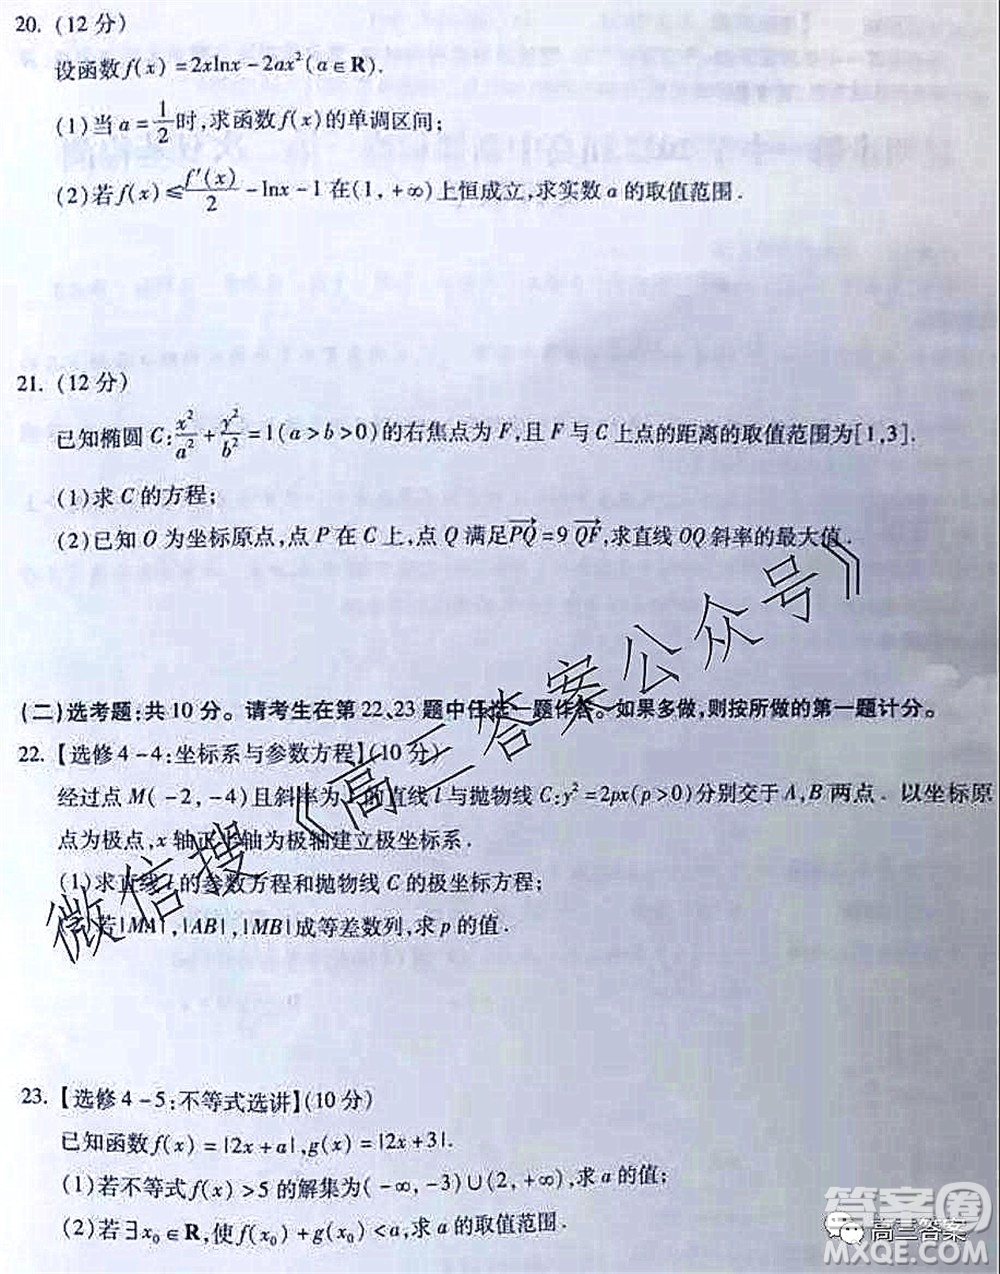 20. (12 分)
设函数 f(x) = 2xlnx - 2ax²(a∈R).
(1)当 a = 1/2 时,求函数 f(x)的单调区间;
(2)若 f(x) ≤ f′(x)/2 - lnx - 1 在(1, +∞)上恒成立,求实数 a 的取值范围.
21. (12 分)
已知椭圆 C: x²/a² + y²/b² = 1(a > b > 0)的右焦点为 F,且 F 与 C 上点的距离的取值范围为[1,3].
(1)求 C 的方程;
(2)已知 O 为坐标原点,点 P 在 C 上,点 Q 满足 PQ→ = 9 QF→,求直线 OQ 斜率的最大值.
(二)选考题:共 10 分。请考生在第 22、23 题中任选一题作答。如果多做,则按所做的第一题计分。
22. 【选修 4 - 4:坐标系与参数方程】(10 分)
经过点 M( - 2, - 4)且斜率为 的直线 l 与抛物线 C:y² = 2px(p > 0)分别交于 A,B 两点. 以坐标原
点为极点,x 轴正半轴为极轴建立极坐标系.
(1)求直线 l 的参数方程和抛物线 C 的极坐标方程;
若|MA|,|AB|,|MB|成等差数列,求 p 的值.
23. 【选修 4 - 5:不等式选讲】(10 分)
已知函数 f(x) = |2x + a|,g(x) = |2x + 3|.
(1)若不等式 f(x) > 5 的解集为( - ∞, - 3)∪(2, + ∞),求 a 的值;
(2)若∃x₀∈R,使 f(x₀) + g(x₀) < a,求 a 的取值范围.
微信搜《高三答案公众号》
答案圈
高三答案
MXQE.COM